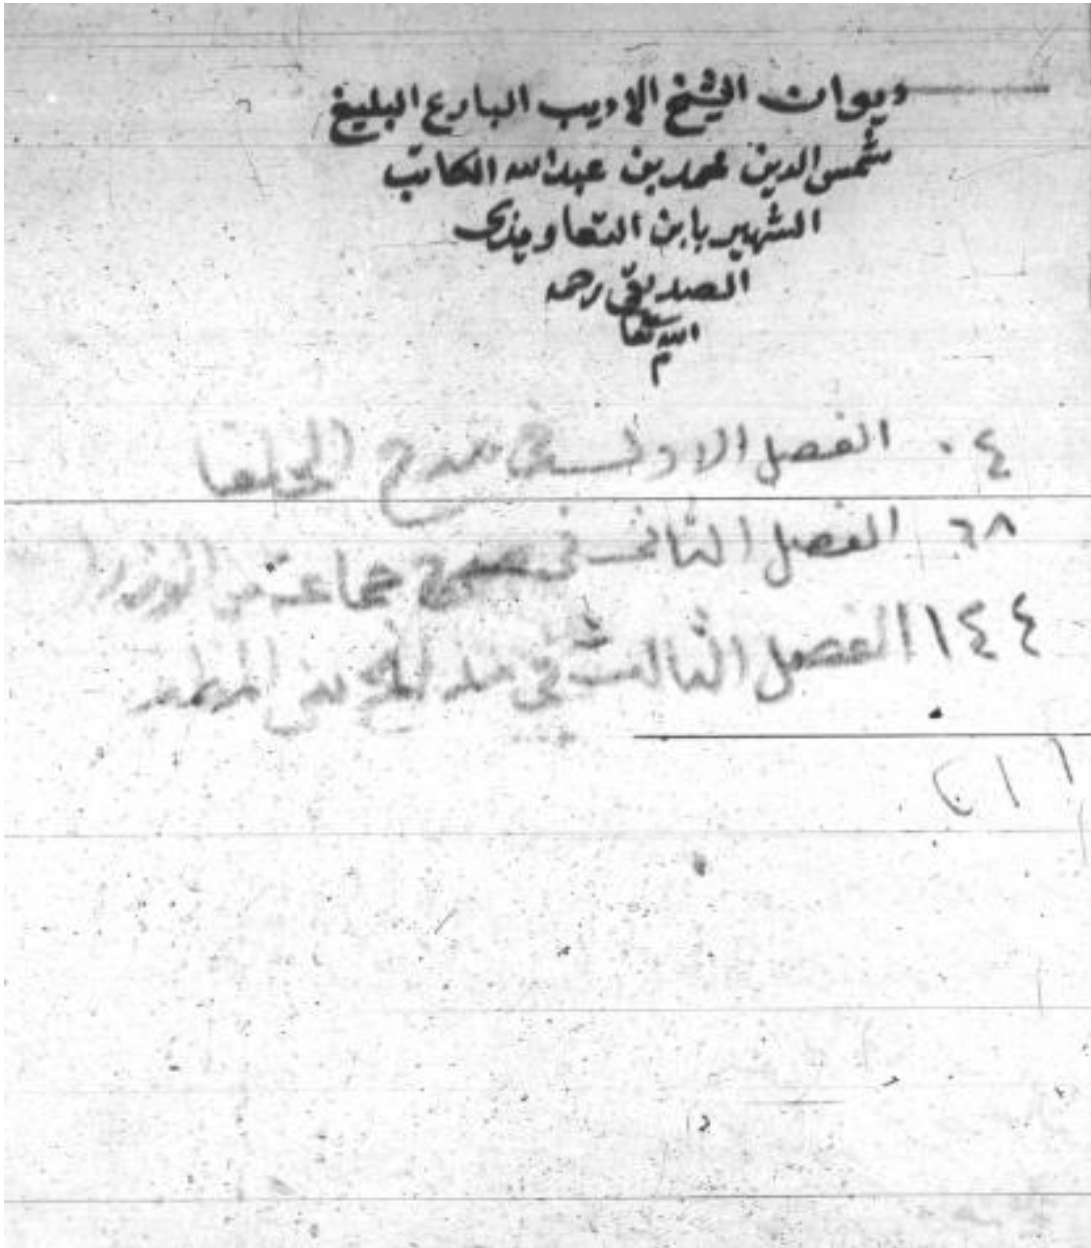 ديوان الشيخ الاديب البارع البليغ
شمس الدين محمد بن عبد الله الكاتب
الشهير بابن التعاويذي
الصديقي رحمه
الله تعا
م
٠٤ الفصل الاول في مدح الخلفا
٦٨ الفصل الثاني في مدح جماعة من الوزرا
١٤٤ الفصل الثالث في مدائح بني المظفر